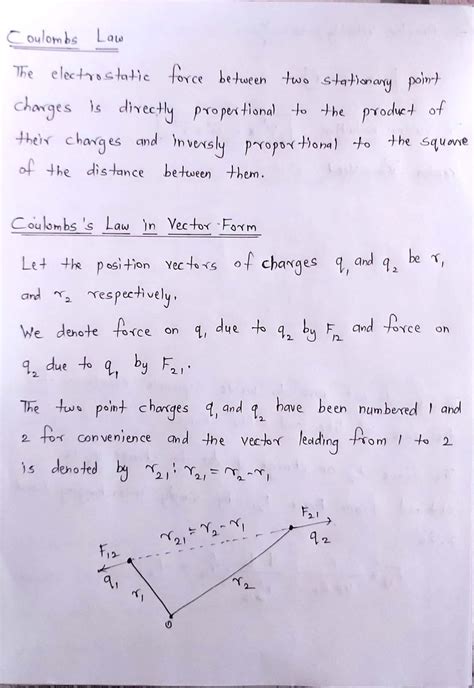 Coulombs Law
The electrostatic force between two stationary point
charges is directly propertional to the product of
their charges and inversly proportional to the square
of the distance between them.
Coulombs's Law in Vector Form
Let the position vectors of charges q₁ and q₂ be r₁
and r₂ respectively.
We denote force on q₁ due to q₂ by F₁₂ and force on
q₂ due to q₁ by F₂₁.
The two point charges q₁ and q₂ have been numbered 1 and
2 for convenience and the vector leading from 1 to 2
is denoted by r₂₁ : r₂₁ = r₂-r₁
F₂₁
r₂₁ = r₂-r₁
q₂
F₁₂
q₁
r₁
r₂
O